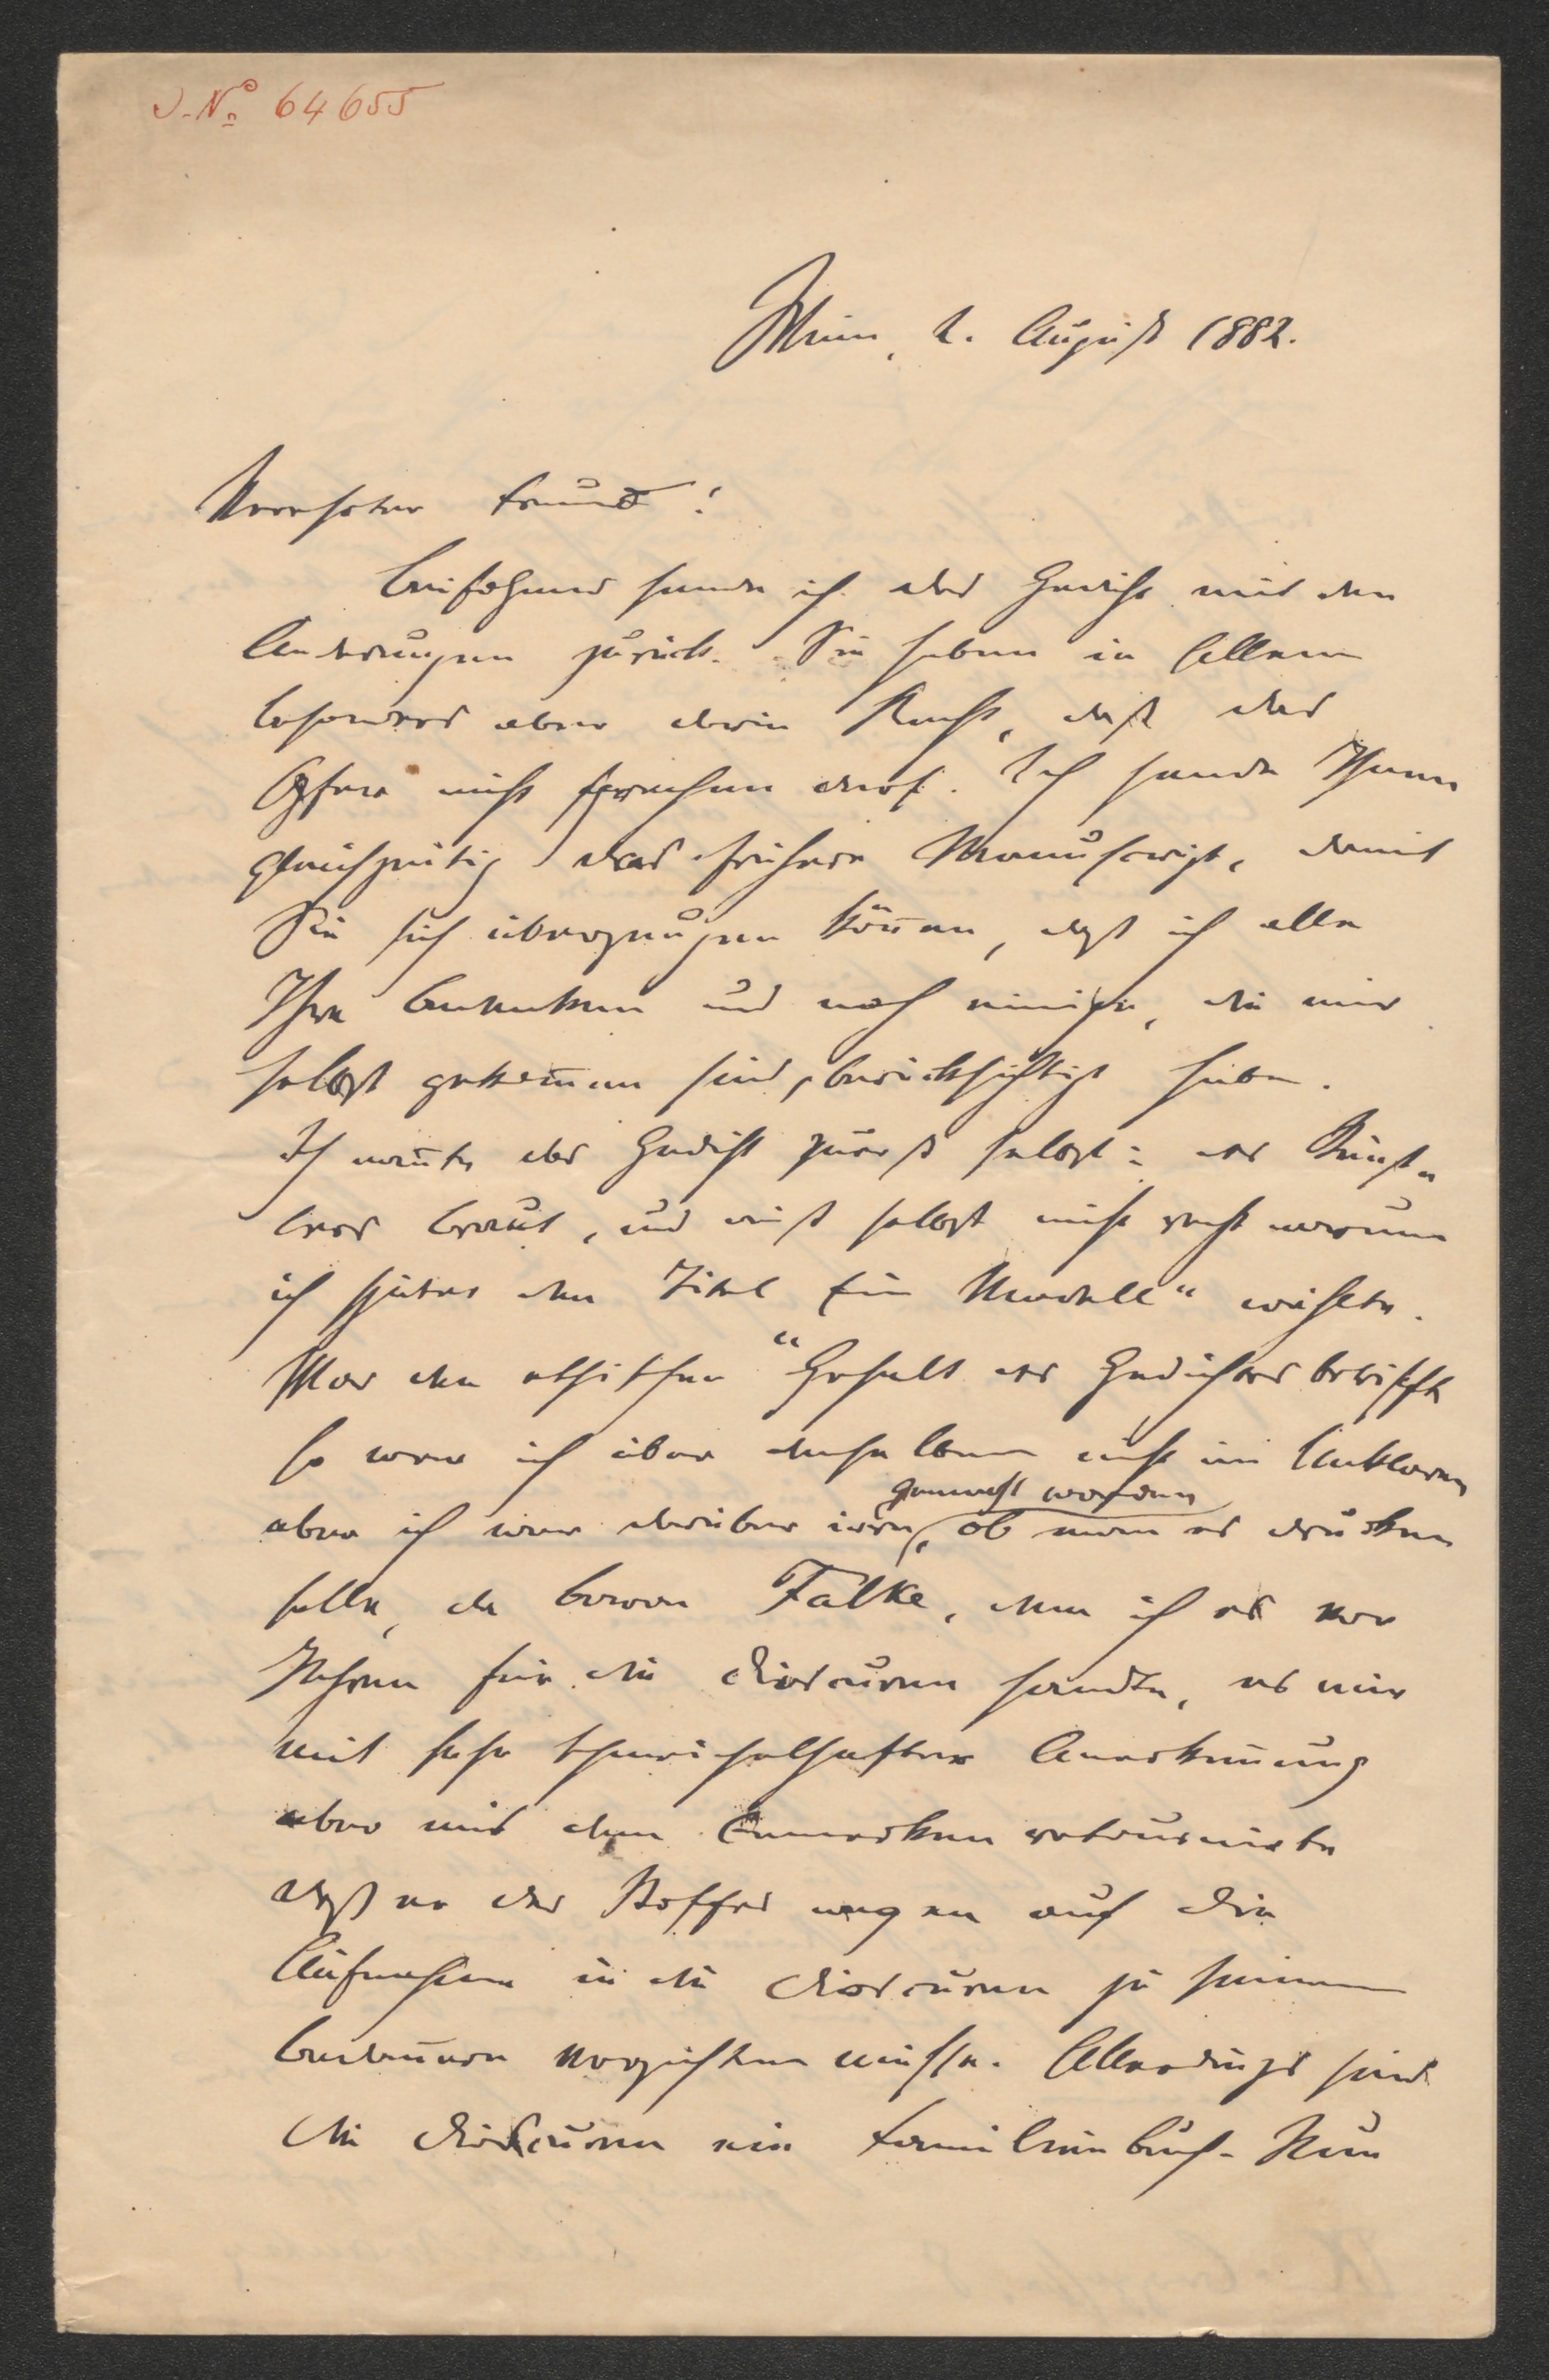 J.Nº 64655
Wien, 2. August 1882.
Verehrter Freund!
Beifolgend sende ich das Gedicht mit den
Änderungen zurück. Sie haben in Allem
besonders aber darin Recht, daß das
Opfer nicht sprechen darf. Ich sende Ihnen
gleichzeitig das frühere Manuscript, damit
Sie sich überzeugen können, daß ich alle
Ihre Bedenken und noch einige, die mir
selbst gekommen sind, berücksichtigt habe.
Ich nannte das Gedicht zuerst selbst: des Künst-
lers Braut, und weiß selbst nicht recht warum
ich später den Titel Ein Modell" wählte.
Was den ethischen Gehalt des Gedichtes betrifft
so war ich über denselben nicht im Unklaren
gemacht worden
aber ich war darüber irre, ob man es drucken
solle, da Baron Falke, dem ich es vor
Jahren für die Dioscuren sandte, es mir
mit sehr schmeichelhafter Anerkennung
aber mit dem Bemerken retournirte
daß er des Stoffes wegen auf die
Aufnahme in die Dioscuren zu seinem
Bedauern verzichten müsse. Allerdings sind
die Dioscuren ein Familienbuch. Nun